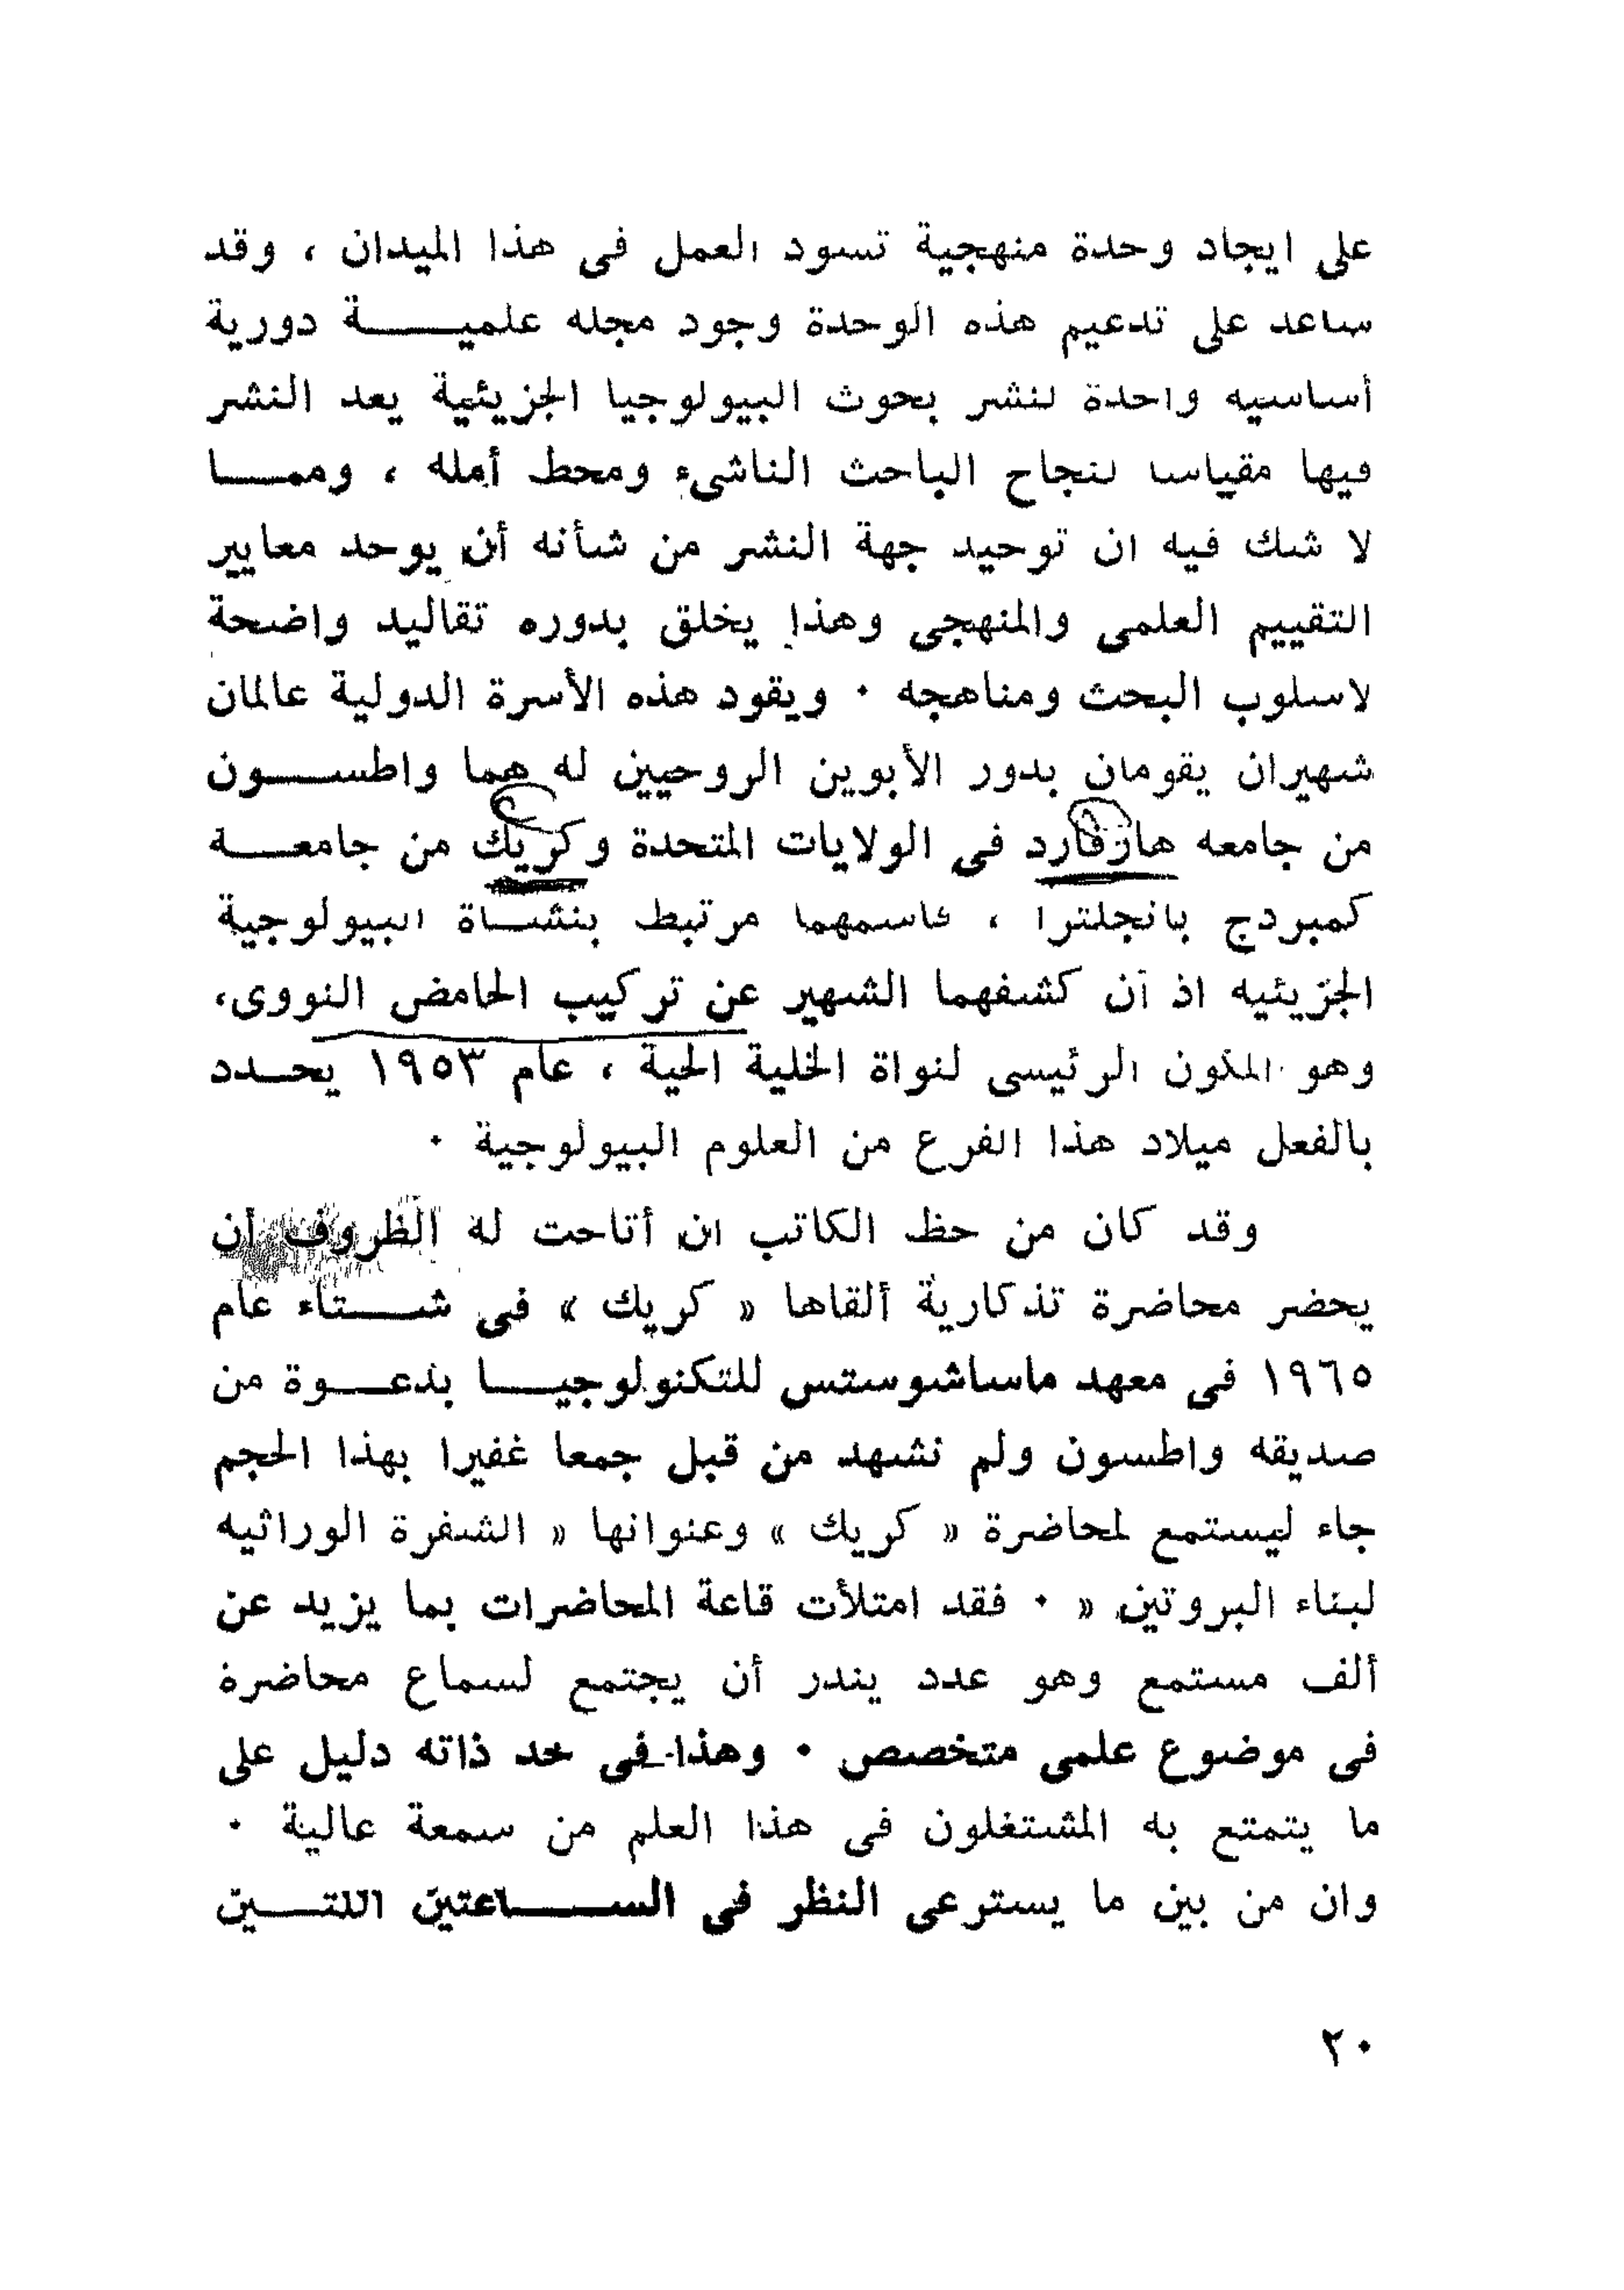 على ايجاد وحدة منهجية تسود العمل فى هذا الميدان ، وقد
ساعد على تدعيم هذه الوحدة وجود مجله علمية دورية
أساسيه واحدة لنشر بحوث البيولوجيا الجزيئية يعد النشر
فيها مقياسا لنجاح الباحث الناشىء ومحط أمله ، ومما
لا شك فيه ان توحيد جهة النشر من شأنه أن يوحد معايير
التقييم العلمى والمنهجى وهذا يخلق بدوره تقاليد واضحة
لاسلوب البحث ومناهجه ٠ ويقود هذه الأسرة الدولية عالمان
شهيران يقومان بدور الأبوين الروحيين له هما واطسون
من جامعه هارفارد فى الولايات المتحدة وكريك من جامعة
كمبردج بانجلترا ، فاسمهما مرتبط بنشأة البيولوجية
الجزيئيه اذ أن كشفهما الشهير عن تركيب الحامض النووى،
وهو المكون الرئيسى لنواة الخلية الحية ، عام ١٩٥٣ يحدد
بالفعل ميلاد هذا الفرع من العلوم البيولوجية ٠
وقد كان من حظ الكاتب ان أتاحت له الظروف أن
يحضر محاضرة تذكارية ألقاها « كريك » فى شتاء عام
١٩٦٥ فى معهد ماساشوستس للتكنولوجيا بدعوة من
صديقه واطسون ولم نشهد من قبل جمعا غفيرا بهذا الحجم
جاء ليستمع لمحاضرة « كريك » وعنوانها « الشفرة الوراثيه
لبناء البروتين « ٠ فقد امتلأت قاعة المحاضرات بما يزيد عن
ألف مستمع وهو عدد يندر أن يجتمع لسماع محاضرة
فى موضوع علمى متخصص ٠ وهذا فى حد ذاته دليل على
ما يتمتع به المشتغلون فى هذا العلم من سمعة عالية ٠
وان من بين ما يسترعى النظر فى الساعتين اللتين
٢٠